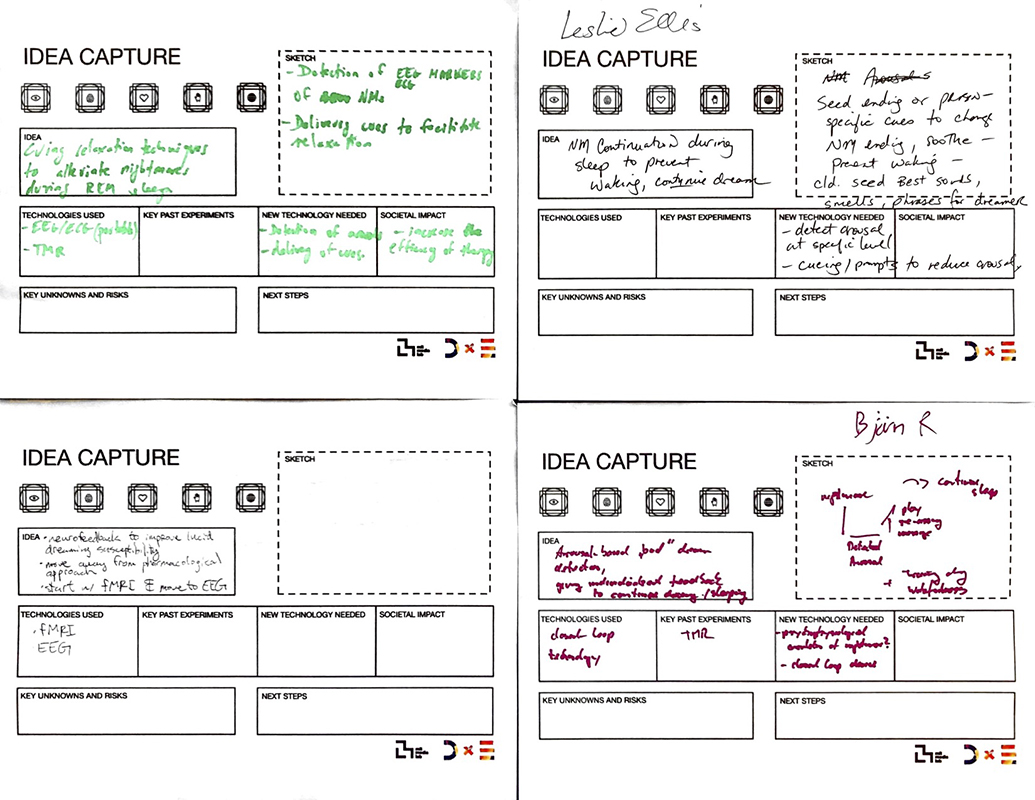 IDEA CAPTURE
SKETCH
- Detection of EEG MARKERS
ECG
of NMs
- Delivering cues to facilitate
relaxation
IDEA
Cuing relaxation techniques
to alleviate nightmares
during REM sleep
TECHNOLOGIES USED
- EEG/ECG (portable)
- TMR
KEY PAST EXPERIMENTS
NEW TECHNOLOGY NEEDED
- Detection of arousals
- delivery of cues.
SOCIETAL IMPACT
- increase the
efficacy of therapy
KEY UNKNOWNS AND RISKS
NEXT STEPS
Leslie Ellis
IDEA CAPTURE
SKETCH
NM Arousals
Seed ending or person-
specific cues to change
NM ending, soothe -
prevent waking -
cld. seed Best sounds,
smells, phrases for dreamer
IDEA
NM Continuation during
sleep to prevent
waking, continue dream
TECHNOLOGIES USED
KEY PAST EXPERIMENTS
NEW TECHNOLOGY NEEDED
- detect arousal
at specific level
- cueing/prompts to reduce arousal
SOCIETAL IMPACT
KEY UNKNOWNS AND RISKS
NEXT STEPS
IDEA CAPTURE
SKETCH
IDEA • neurofeedback to improve lucid
dreaming susceptibility
• move away from pharmacological
approach
• start w/ fMRI & move to EEG
TECHNOLOGIES USED
• fMRI
EEG
KEY PAST EXPERIMENTS
NEW TECHNOLOGY NEEDED
SOCIETAL IMPACT
KEY UNKNOWNS AND RISKS
NEXT STEPS
Björn R
IDEA CAPTURE
SKETCH
nightmare
continue
sleep
play
message
Detected
Arousal
IDEA
Arousal-based "bad" dream
detector,
giving individualized feedback
to continue dreaming/sleeping
TECHNOLOGIES USED
closed loop
technology
KEY PAST EXPERIMENTS
TMR
NEW TECHNOLOGY NEEDED
- psychophysiological
correlates of nightmares?
- closed loop devices
SOCIETAL IMPACT
KEY UNKNOWNS AND RISKS
NEXT STEPS